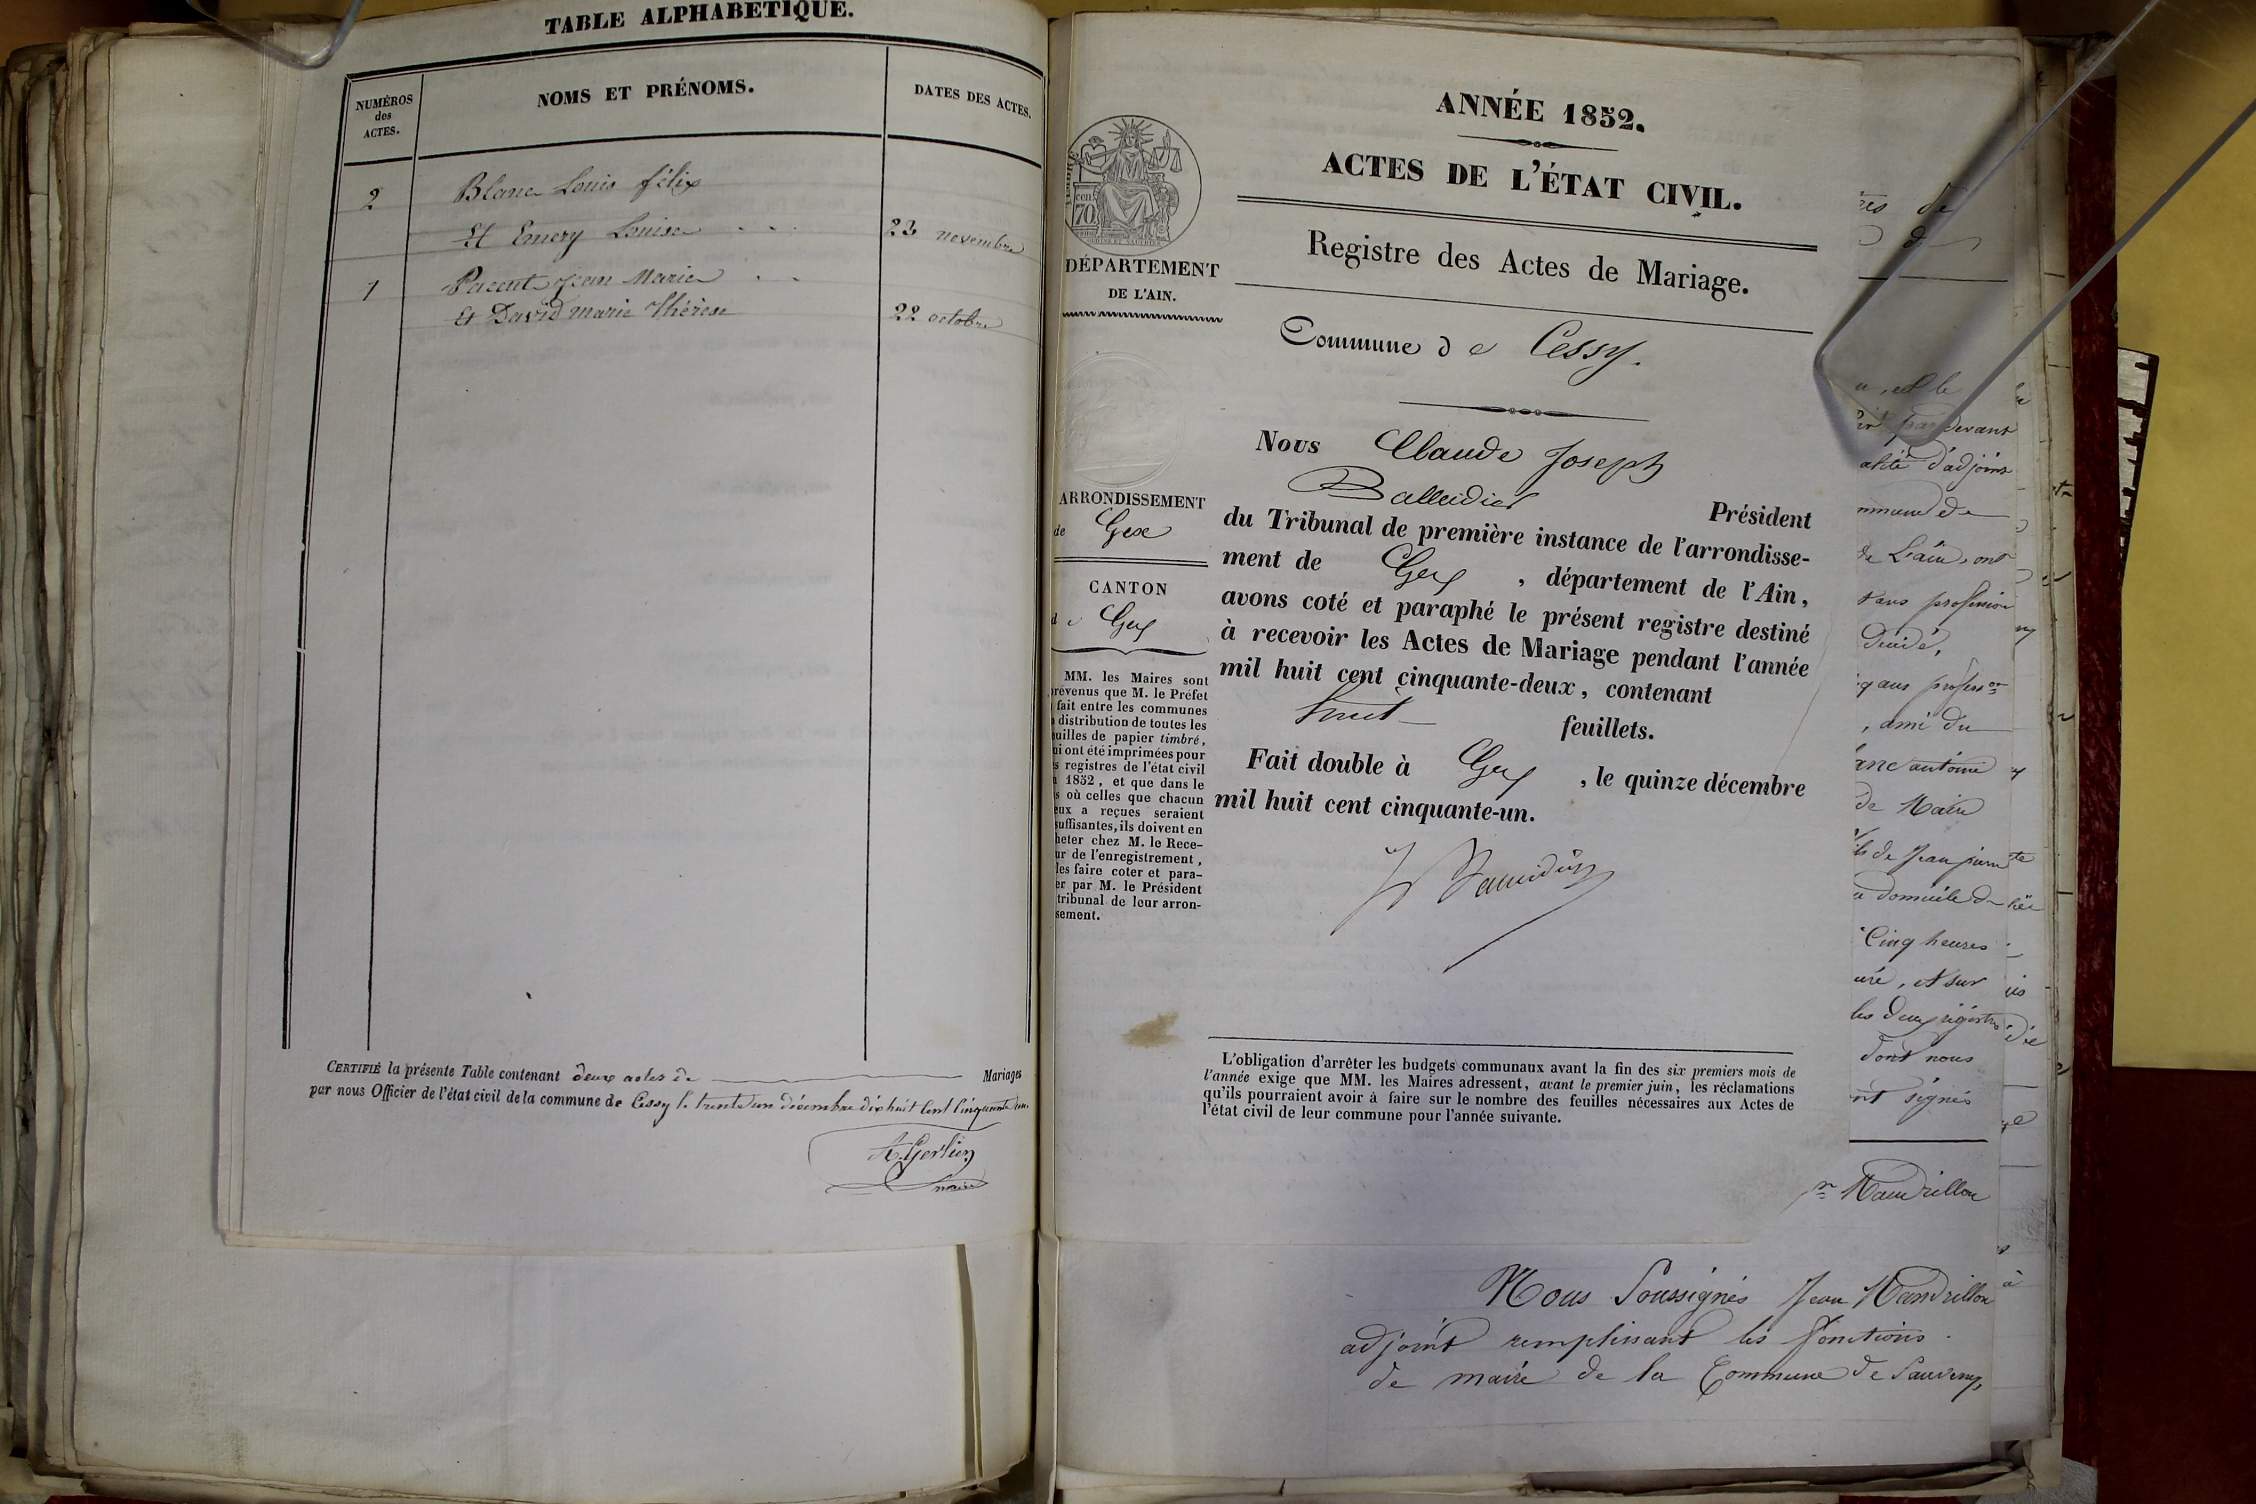 TABLE ALPHABÉTIQUE.
NUMÉROS
des
ACTES.
NOMS ET PRÉNOMS.
DATES DES ACTES.
2 Blanc Louis félix
Et Emery Louise . . . 23 novembre
1 Jean Marie . .
Et David marie thérèse 22 octobre
CERTIFIÉ la présente Table contenant deux actes de Mariages
par nous Officier de l'état civil de la commune de Cessy le trente un décembre dix huit cent cinquante un.
maire
ANNÉE 1852.
ACTES DE L'ÉTAT CIVIL.
Registre des Actes de Mariage.
Commune de Cessy.
70
DÉPARTEMENT
DE L'AIN.
ARRONDISSEMENT
de Gex
CANTON
de Gex
MM. les Maires sont
prévenus que M. le Préfet
fait entre les communes
distribution de toutes les
feuilles de papier timbré,
qui ont été imprimées pour
les registres de l'état civil
1852, et que dans le
où celles que chacun
eux a reçues seraient
suffisantes, ils doivent en
acheter chez M. le Rece-
veur de l'enregistrement,
les faire coter et para-
pher par M. le Président
tribunal de leur arron-
dissement.
Nous Claude Joseph
Balleidier Président
du Tribunal de première instance de l'arrondisse-
ment de Gex, département de l'Ain,
avons coté et paraphé le présent registre destiné
à recevoir les Actes de Mariage pendant l'année
mil huit cent cinquante-deux, contenant
huit feuillets.
Fait double à Gex, le quinze décembre
mil huit cent cinquante-un.
L'obligation d'arrêter les budgets communaux avant la fin des six premiers mois de
l'année exige que MM. les Maires adressent, avant le premier juin, les réclamations
qu'ils pourraient avoir à faire sur le nombre des feuilles nécessaires aux Actes de
l'état civil de leur commune pour l'année suivante.
de
et le
par devant
d'adjoint
de
de L'ain, ont
sans profession
décidé,
ami du
antoine
de Maire
fils de Jean pierre
domicile de
Cinq heures
et sur
les deux registres
dont nous
ont signés
Mandrillon
Nous Soussignés Jean Mandrillon
adjoint remplissant les fonctions
de maire de la Commune de Sauverny,